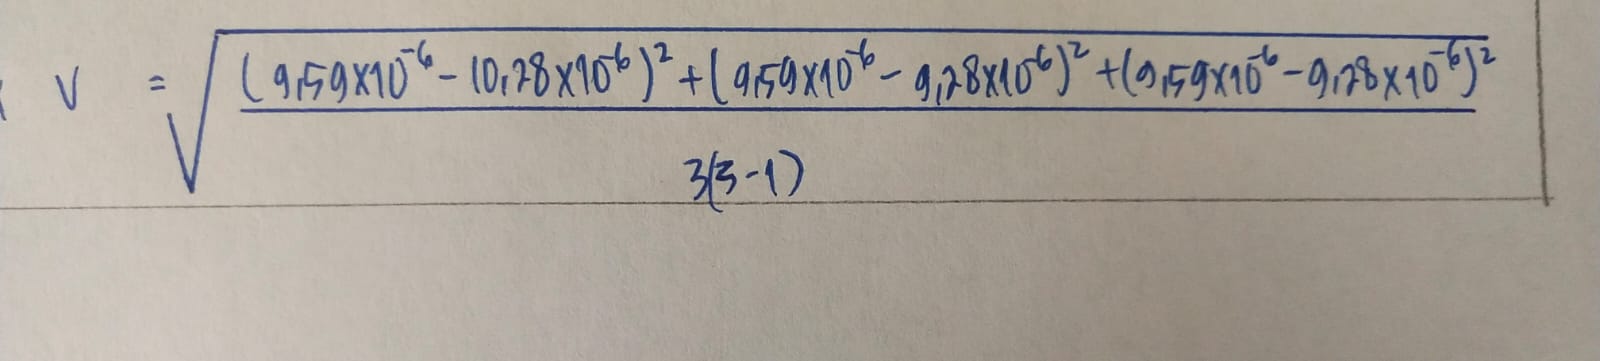 V = √((9,59x10⁻⁶ - 10,28x10⁻⁶)² + (9,59x10⁻⁶ - 9,28x10⁻⁶)² + (9,59x10⁻⁶ - 9,28x10⁻⁶)²
3(3-1)